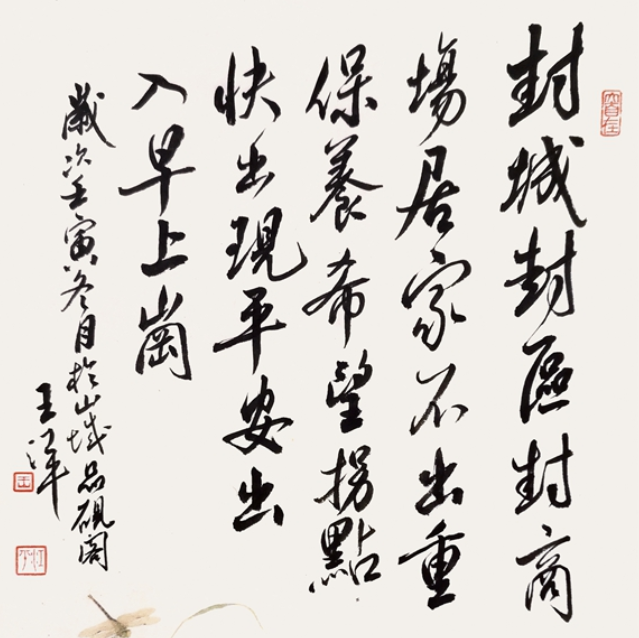 封城封區封商
場居家不出重
保養希望拐點
快出現平安出
入早上崗
歲次壬寅冬月於山城品砚阁
王洋